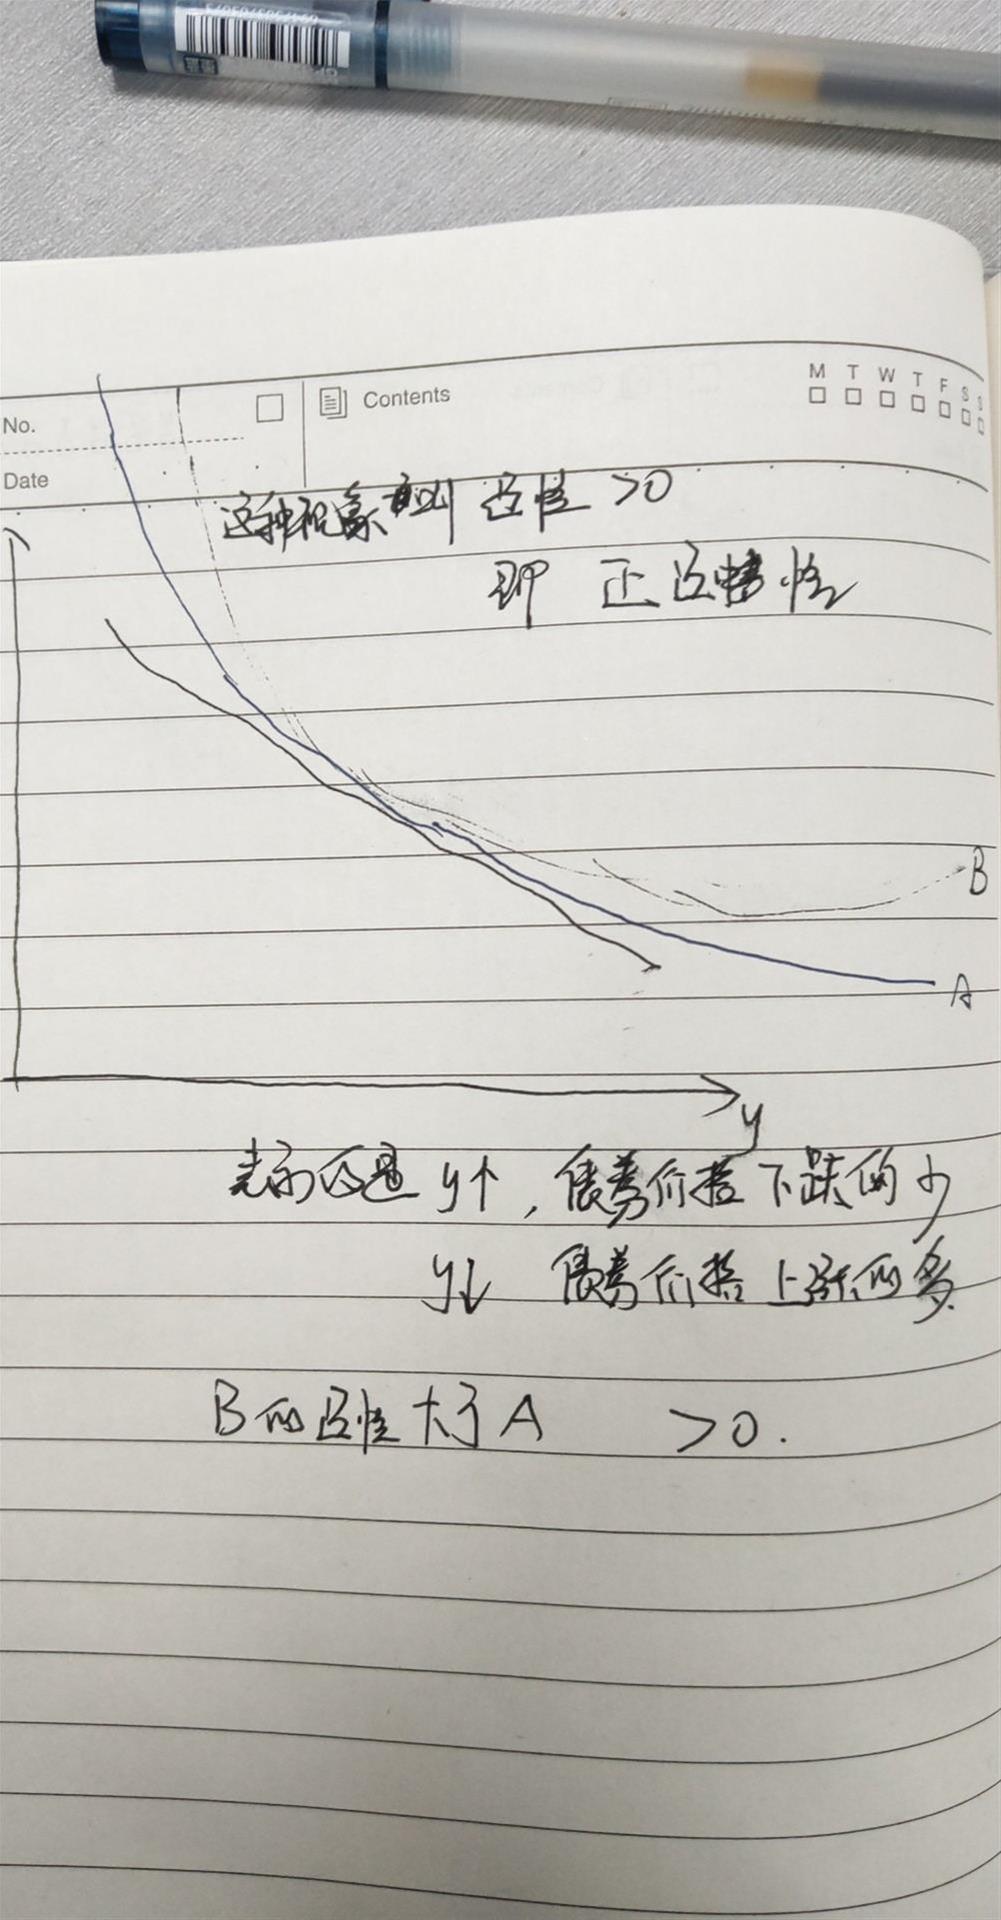 No.
Contents
M T W T F S S
Date
这种现象 凸性 >0
即 正凸 性
B
A
y
表示的是 y↑,债券价格下跌的少
y↓ 债券价格上涨的多
B的凸性大于A >0.